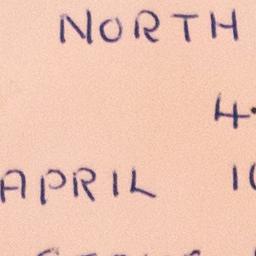 NORTH
4.
APRIL 10